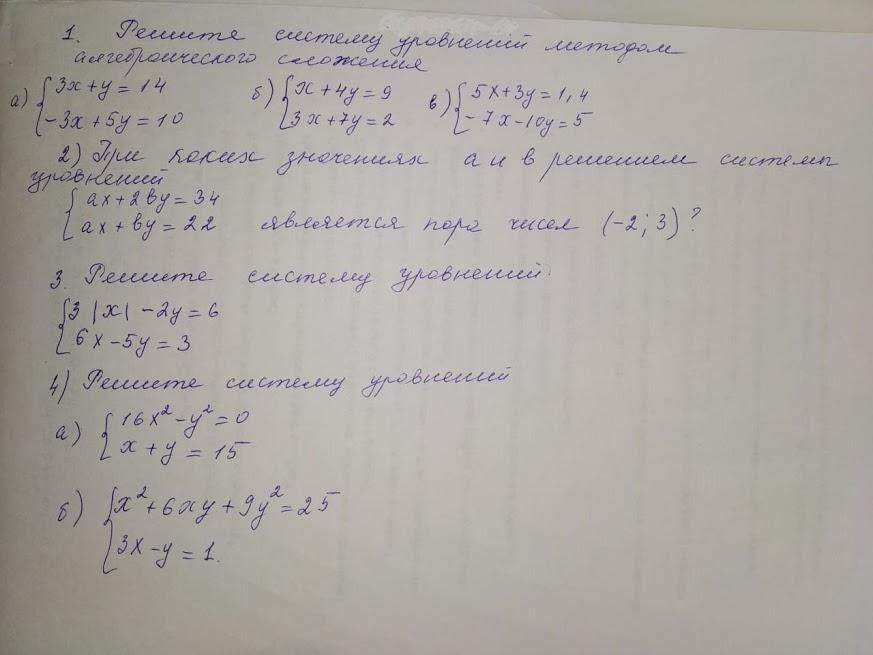 1. Решите систему уровнений методом
алгебраического сложения
а) { 3x+y=14 б) { x+4y=9 в) { 5x+3y=1,4
-3x+5y=10 3x+7y=2 -7x-10y=5
2) При каких значениях а и в решением системы
уровнений
{ ax+2вy=34
ax+вy=22 является пара чисел (-2; 3)?
3. Решите систему уровнений.
{ 3|x|-2y=6
6x-5y=3
4) Решите систему уровнений
а) { 16x²-y²=0
x+y=15
б) { x²+6xy+9y²=25
3x-y=1.